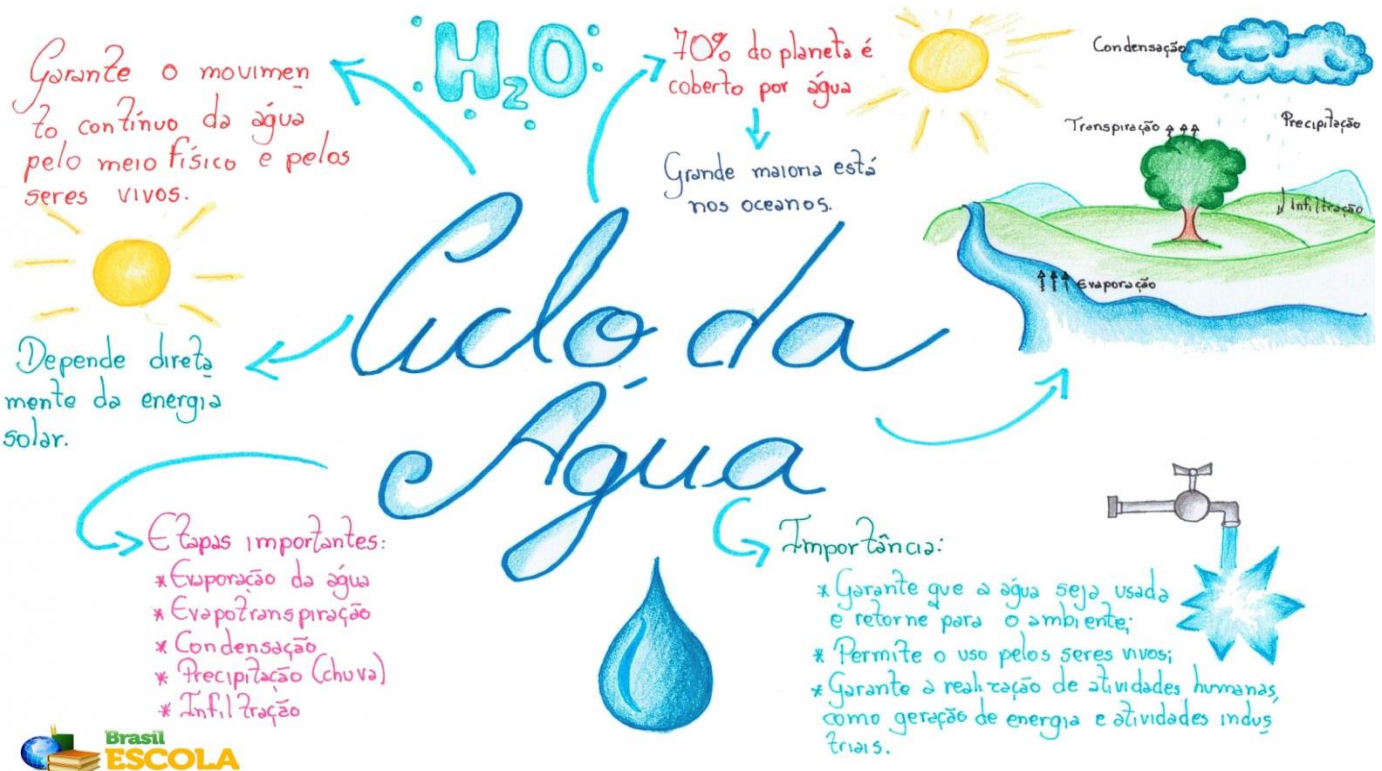 H₂O
Garante o movimen
to contínuo da água
pelo meio físico e pelos
seres vivos.
70% do planeta é
coberto por água
Grande maioria está
nos oceanos.
Condensação
Transpiração
Precipitação
Infiltração
Evaporação
Ciclo da
Água
Depende direta
mente da energia
solar.
Etapas importantes:
* Evaporação da água
* Evapotranspiração
* Condensação
* Precipitação (chuva)
* Infiltração
Importância:
* Garante que a água seja usada
e retorne para o ambiente;
* Permite o uso pelos seres vivos;
* Garante a realização de atividades humanas,
como geração de energia e atividades indus
triais.
Brasil
ESCOLA